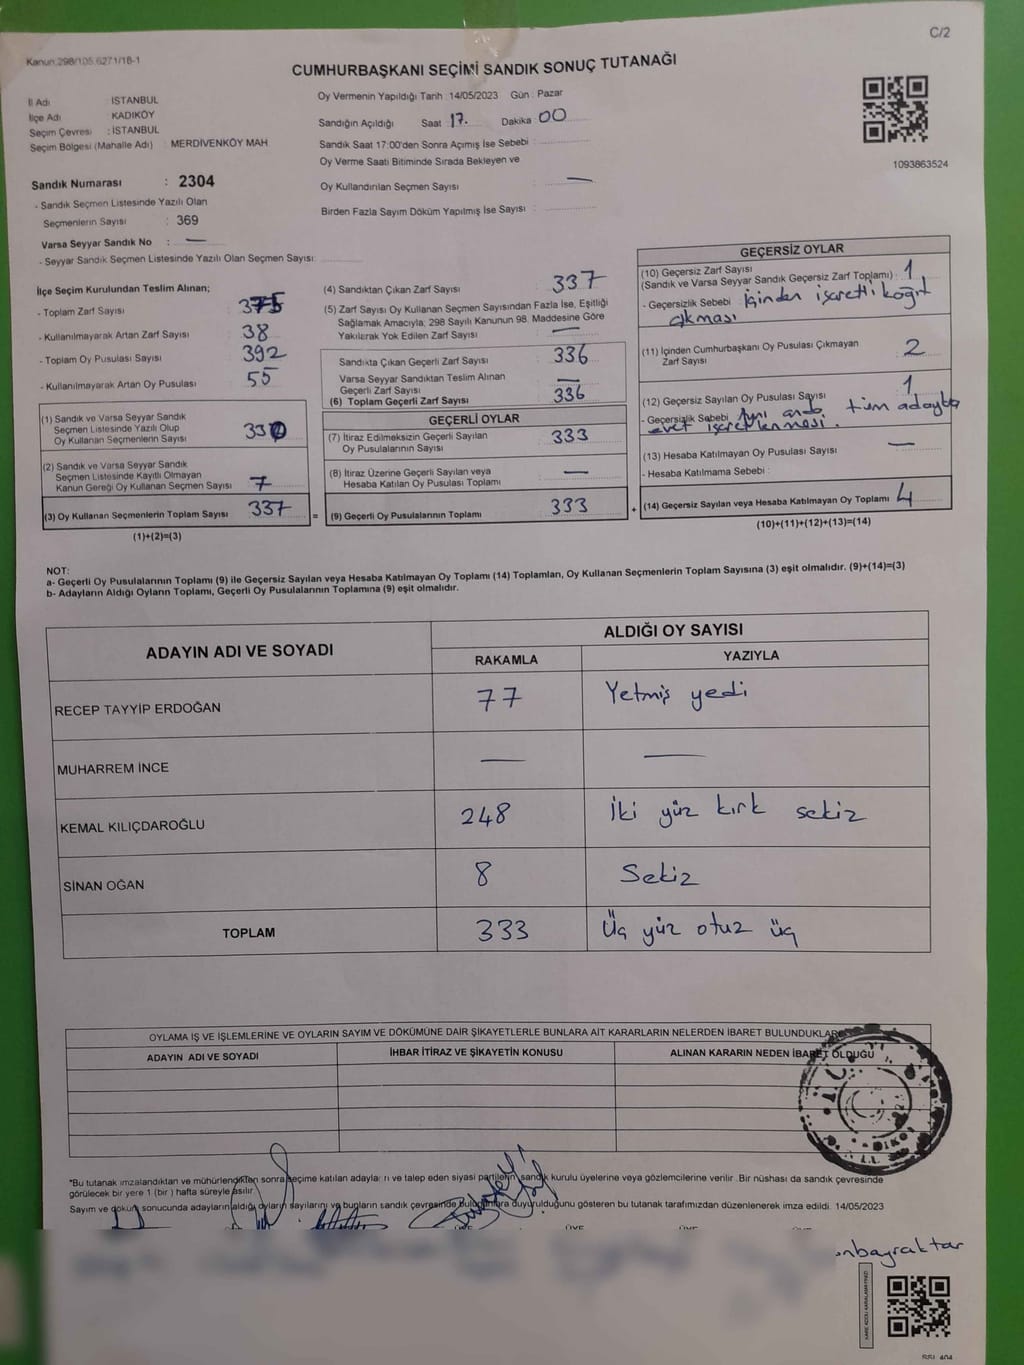 C/2
Kanun 298/105,6271/18-1
CUMHURBAŞKANI SEÇİMİ SANDIK SONUÇ TUTANAĞI
İl Adı : İSTANBUL
İlçe Adı : KADIKÖY
Seçim Çevresi : İSTANBUL
Seçim Bölgesi (Mahalle Adı) : MERDİVENKÖY MAH
Sandık Numarası : 2304
- Sandık Seçmen Listesinde Yazılı Olan
Seçmenlerin Sayısı : 369
Varsa Seyyar Sandık No : —
- Seyyar Sandık Seçmen Listesinde Yazılı Olan Seçmen Sayısı:
Oy Vermenin Yapıldığı Tarih : 14/05/2023 Gün : Pazar
Sandığın Açıldığı Saat 17. Dakika 00
Sandık Saat 17:00'den Sonra Açımış İse Sebebi :
Oy Verme Saati Bitiminde Sırada Bekleyen ve
Oy Kullandırılan Seçmen Sayısı : —
Birden Fazla Sayım Döküm Yapılmış İse Sayısı :
1093863524
İlçe Seçim Kurulundan Teslim Alınan;
- Toplam Zarf Sayısı : 375
- Kullanılmayarak Artan Zarf Sayısı : 38
- Toplam Oy Pusulası Sayısı : 392
- Kullanılmayarak Artan Oy Pusulası : 55
(1) Sandık ve Varsa Seyyar Sandık
Seçmen Listesinde Yazılı Olup
Oy Kullanan Seçmenlerin Sayısı : 330
(2) Sandık ve Varsa Seyyar Sandık
Seçmen Listesinde Kayıtlı Olmayan
Kanun Gereği Oy Kullanan Seçmen Sayısı : 7
(3) Oy Kullanan Seçmenlerin Toplam Sayısı : 337
(1)+(2)=(3)
(4) Sandıktan Çıkan Zarf Sayısı : 337
(5) Zarf Sayısı Oy Kullanan Seçmen Sayısından Fazla İse, Eşitliği
Sağlamak Amacıyla; 298 Sayılı Kanunun 98. Maddesine Göre
Yakılarak Yok Edilen Zarf Sayısı : —
Sandıkta Çıkan Geçerli Zarf Sayısı : 336
Varsa Seyyar Sandıktan Teslim Alınan
Geçerli Zarf Sayısı : —
(6) Toplam Geçerli Zarf Sayısı : 336
GEÇERLİ OYLAR
(7) İtiraz Edilmeksizin Geçerli Sayılan
Oy Pusulalarının Sayısı : 333
(8) İtiraz Üzerine Geçerli Sayılan veya
Hesaba Katılan Oy Pusulası Toplamı : —
= (9) Geçerli Oy Pusulalarının Toplamı : 333
GEÇERSİZ OYLAR
(10) Geçersiz Zarf Sayısı
(Sandık ve Varsa Seyyar Sandık Geçersiz Zarf Toplamı) : 1
- Geçersizlik Sebebi : İçinden işaretli kağıt
çıkması
(11) İçinden Cumhurbaşkanı Oy Pusulası Çıkmayan
Zarf Sayısı : 2
(12) Geçersiz Sayılan Oy Pusulası Sayısı : 1
- Geçersizlik Sebebi : Aynı anda tüm adaylara
evet işaretlenmesi.
(13) Hesaba Katılmayan Oy Pusulası Sayısı : —
- Hesaba Katılmama Sebebi :
+ (14) Geçersiz Sayılan veya Hesaba Katılmayan Oy Toplamı : 4
(10)+(11)+(12)+(13)=(14)
NOT:
a- Geçerli Oy Pusulalarının Toplamı (9) ile Geçersiz Sayılan veya Hesaba Katılmayan Oy Toplamı (14) Toplamları, Oy Kullanan Seçmenlerin Toplam Sayısına (3) eşit olmalıdır. (9)+(14)=(3)
b- Adayların Aldığı Oyların Toplamı, Geçerli Oy Pusulalarının Toplamına (9) eşit olmalıdır.
ADAYIN ADI VE SOYADI ALDIĞI OY SAYISI
RAKAMLA YAZIYLA
RECEP TAYYİP ERDOĞAN 77 Yetmiş yedi
MUHARREM İNCE — —
KEMAL KILIÇDAROĞLU 248 İki yüz kırk sekiz
SİNAN OĞAN 8 Sekiz
TOPLAM 333 Üç yüz otuz üç
OYLAMA İŞ VE İŞLEMLERİNE VE OYLARIN SAYIM VE DÖKÜMÜNE DAİR ŞİKAYETLERLE BUNLARA AİT KARARLARIN NELERDEN İBARET BULUNDUKLAR
ADAYIN ADI VE SOYADI İHBAR İTİRAZ VE ŞİKAYETİN KONUSU ALINAN KARARIN NEDEN İBARET OLDUĞU
*Bu tutanak imzalandıktan ve mühürlendikten sonra seçime katılan adayla: rı ve talep eden siyasi partilerin sandık kurulu üyelerine veya gözlemcilerine verilir .Bir nüshası da sandık çevresinde
görülecek bir yere 1 (bir ) hafta süreyle asılır.
Sayım ve döküm sonucunda adayların aldığı oyların sayılarını ve bunların sandık çevresinde bulunanlara duyurulduğunu gösteren bu tutanak tarafımızdan düzenlenerek imza edildi. 14/05/2023
ÜYE ÜYE ÜYE
onbayraktar